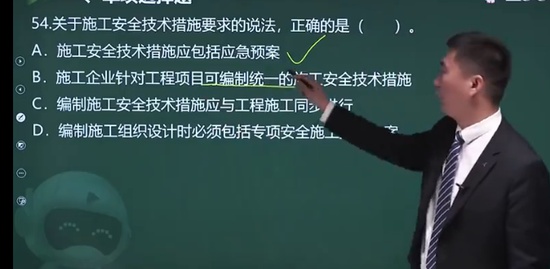 54.关于施工安全技术措施要求的说法，正确的是（  ）。
A．施工安全技术措施应包括应急预案
B．施工企业针对工程项目可编制统一的施工安全技术措施
C．编制施工安全技术措施应与工程施工同步进行
D．编制施工组织设计时必须包括专项安全施工